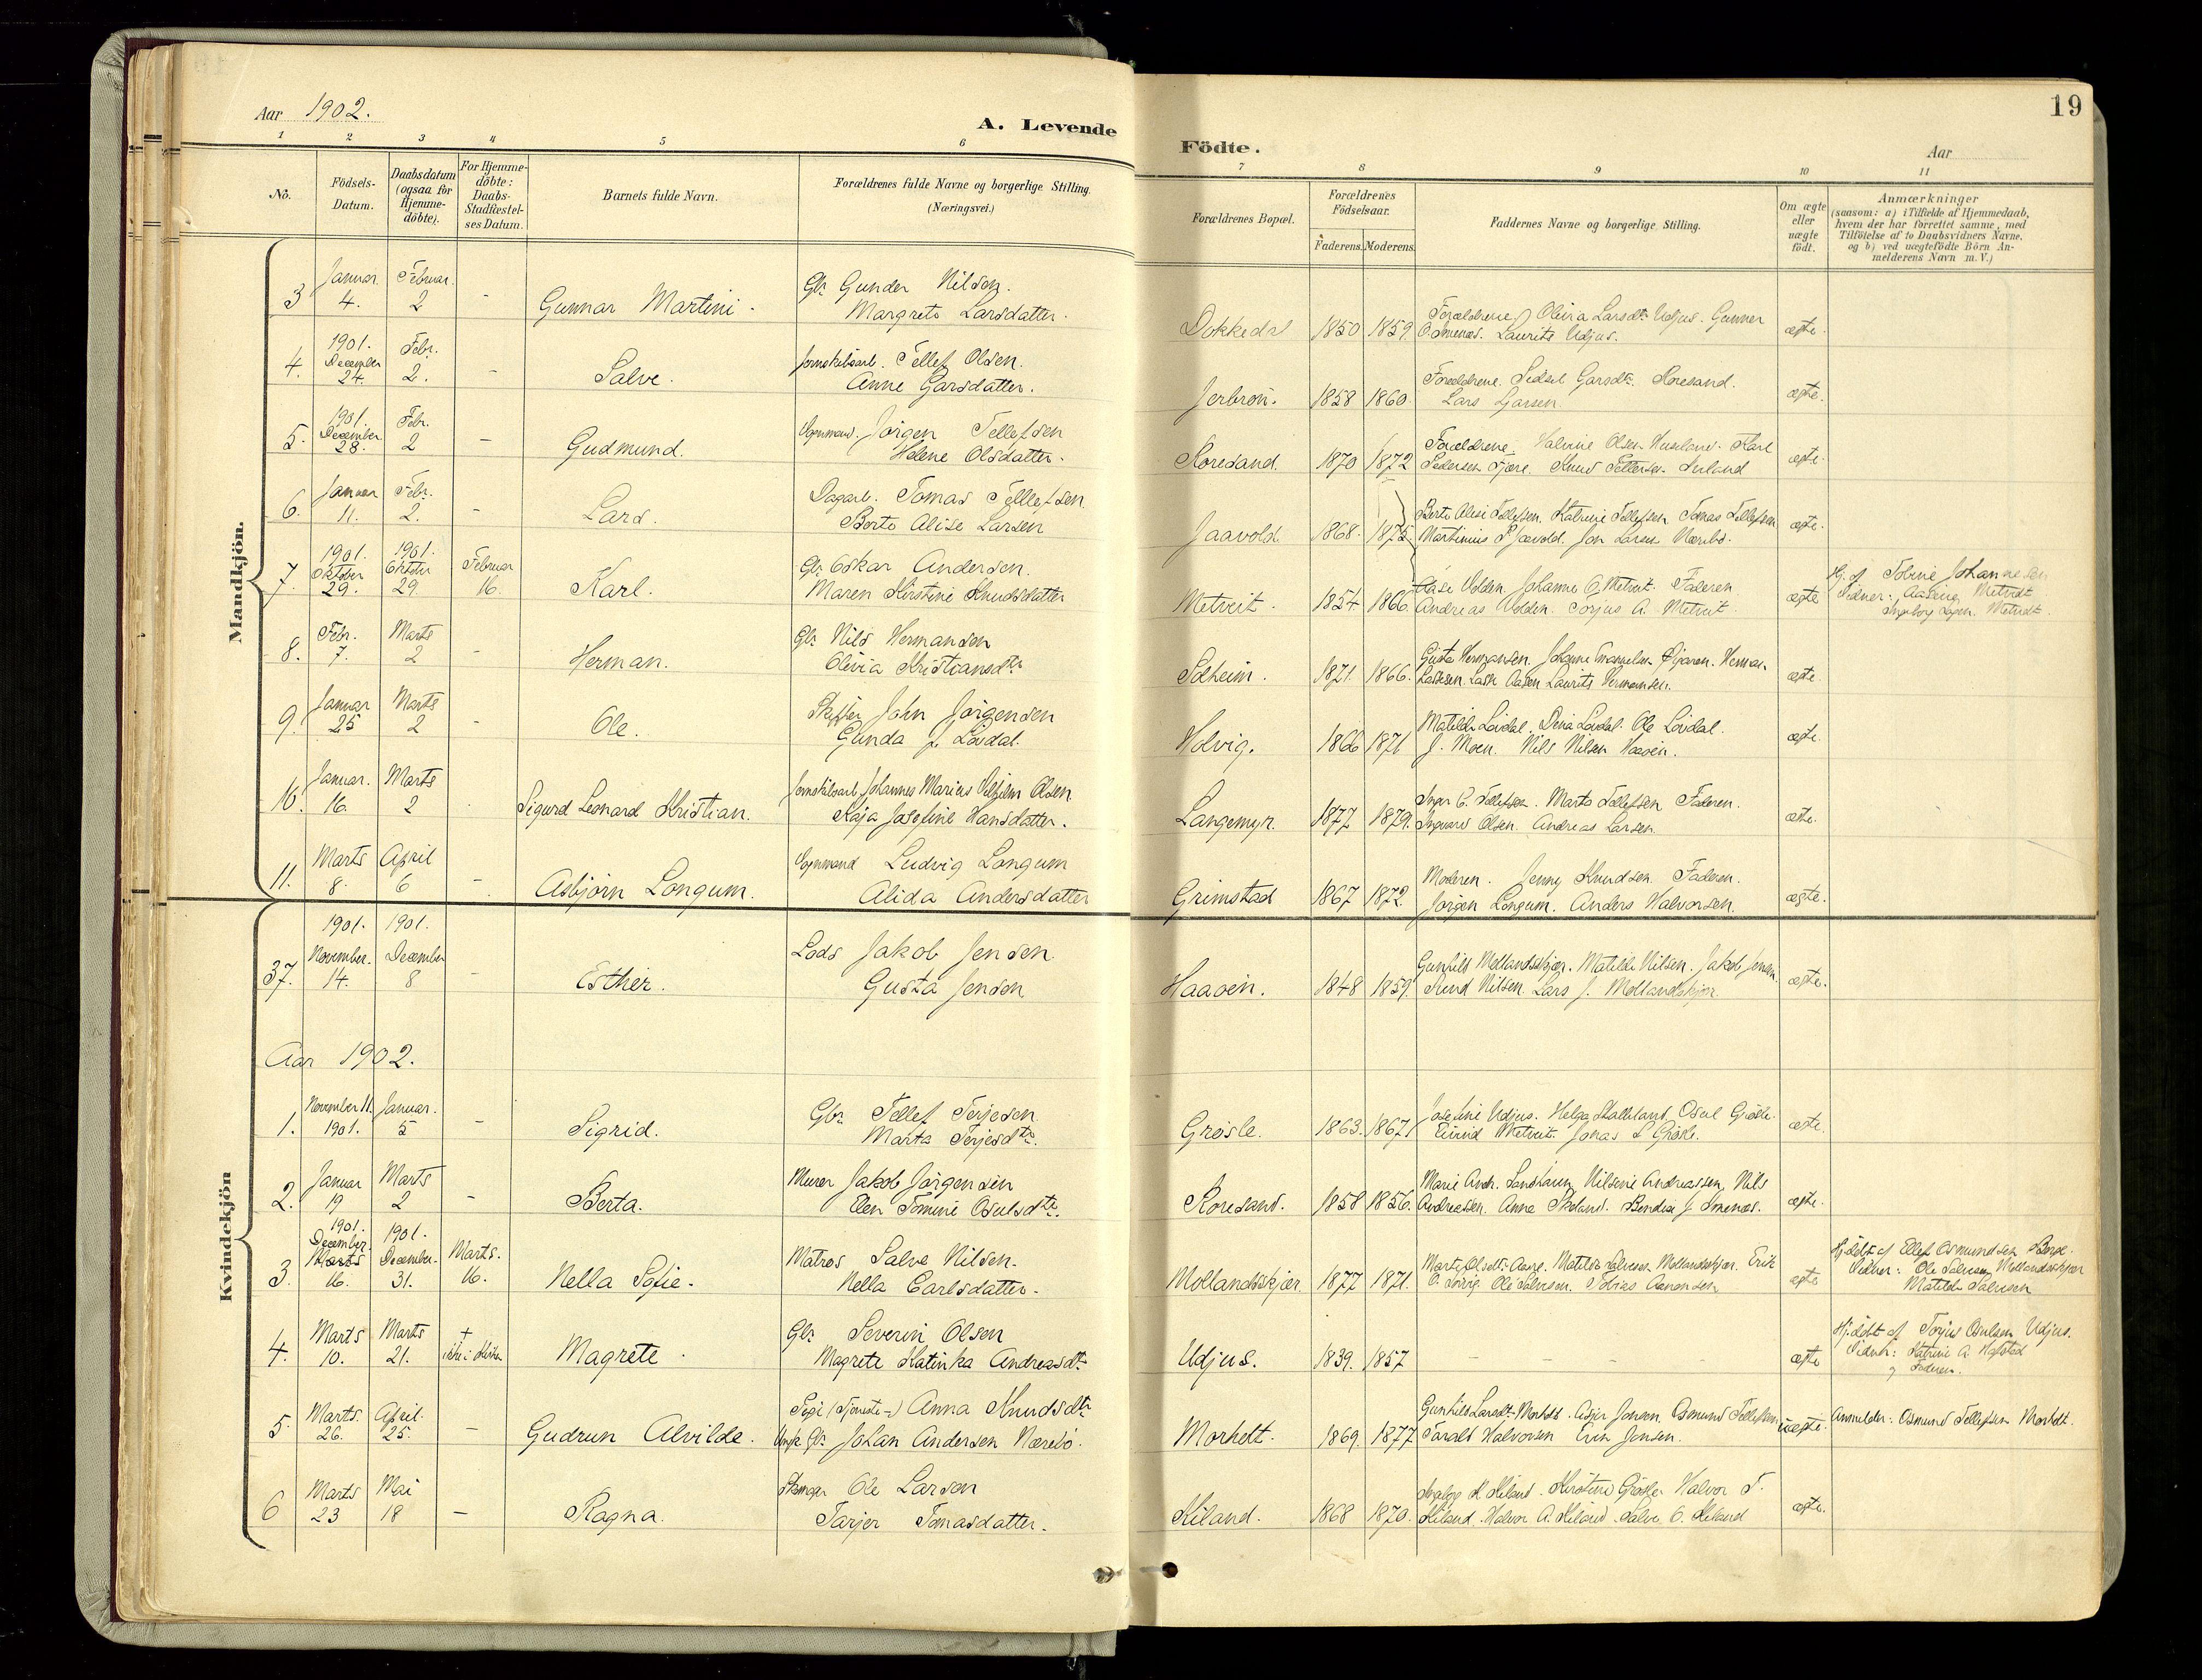 Aar 1902.
A. Levende
Födte.
Aar
19
1 2 3 4 5 6 7 8 9 10 11
No.
Födsels-
Datum.
Daabsdatum
(ogsaa for
Hjemme-
döbte).
For Hjemme-
döbte:
Daabs-
Stadfæstel-
ses Datum.
Barnets fulde Navn.
Forældrenes fulde Navne og borgerlige Stilling.
(Næringsvei.)
Forældrenes Bopæl.
Forældrenes
Födselsaar.
Faderens. Moderens.
Faddernes Navne og borgerlige Stilling.
Om ægte
eller
uægte
födt.
Anmærkninger
(saasom: a) i Tilfælde af Hjemmedaab,
hvem der har forrettet samme, med
Tilföielse af to Daabsvidners Navne,
og b) ved uægtefödte Börn An-
melderens Navn m. V.)
Mandkjön.
3 Januar 4. Februar 2 - Gunnar Martini.
Gbr. Gunder Nilsen.
Margrete Larsdatter.
Dokkedal 1850 1859.
Forældrene, Olivia Larsdtr. Udjus. Gunner
O. Smenes. Laurits Udjus.
ægte.
4. 1901. December 24. Febr. 2. - Salve.
Jernskibsarb. Tellef Olsen.
Anne Garsdatter.
Jerbron. 1858 1860.
Forældrene. Sidsel Garsdtr. Roresand.
Lars Larsen.
ægte.
5. 1901. December 28. Febr. 2 - Gudmund.
Vognmand. Jörgen Tellefsen
Helene Olsdatter.
Roresand. 1870 1872
Forældrene. Olsen Karl
Pedersen Fjære. Knud
ægte.
6. Januar 11. Febr. 2. - Lars.
Dagarb. Tomas Tellefsen.
Berte Alise Larsen
Jaavold 1868. 1875.
Berte Alise Tellefsen. Katrine Tellefsen. Tomas Tellefsen
Martinius P. Jaavold. Jon Larsen Nærebö.
ægte.
7. 1901. Oktober 29. 1901. Oktober 29. Februar 16. Karl.
Gbr. Oskar Andersen.
Maren Kirstine Knudsdatter
Metveit. 1854. 1866.
Aase Volden. Johanne O. Metveit. Faderen.
Andreas Volden. Torjus A. Metveit.
ægte
Hj. af Tobine Johannesen
Vidner: Metveit
Ingeborg Metveit.
8. Febr. 7. Marts 2 - Herman.
Gbr. Nils Hermansen
Olivia Kristiansdtr.
Solheim. 1871. 1866.
Gusta Hermansen. Johanne Herman
Larssen. Aasen Laurits Hermansen.
ægte.
9. Januar 25 Marts 2 - Ole.
Skipper John Jörgensen
Gunda J. Lövdal.
Holvig. 1866 1871
Matilde Lövdal. Dina Lövdal. Ole Lövdal.
J. Moen. Nils Nilsen Haaöen.
ægte.
10. Januar. 16. Marts 2 Sigurd Leonard Kristian.
Jernskibsarb. Johannes Marius Vilhjelm Olsen.
Kaja Josefine Hansdatter.
Langemyr. 1877 1879.
Inger C. Tellefsen. Marta Tellefsen Faderen.
Ingvard Olsen. Andreas Larsen.
ægte.
11. Marts 8. April 6 - Asbjörn Longum.
Vognmand Ludvig Longum
Alida Andersdatter
Grimstad 1867 1872.
Moderen. Jenny Knudsen. Faderen.
Jörgen Longum. Anders Halvorsen.
ægte.
Kvindekjön
37. 1901. November. 14. 1901. December 8 - Esther.
Lods Jakob Jensen
Gusta Jensen
Haaöen. 1848 1859.
Gunhild Mollandsskjær. Matilde Nilsen. Jakob Jensen.
Nilsen. Lars J. Mollandskjær.
ægte.
Aar 1902.
1. November 11. 1901. Januar. 5 - Sigrid.
Gbr. Tellef Terjesen.
Marta Terjesdtr.
Grösle. 1863. 1867
Josefine Udjus. Helga Kalleland Osul Grösle.
Eivind Metveit. Jonas L. Grösle.
ægte.
2. Januar 19 Marts 2 - Berta.
Murer Jakob Jörgensen
Elen Tomine Osulsdtr.
Roresand. 1858 1856.
Marie Andr. Nilsine Andreassen, Nils
Andreassen. Anna Bendix J. Smenes.
ægte.
3. 1901. December. Marts 16. 1901. December. 31. Marts. 16. Nella Sofie.
Matros Salve Nilsen.
Nella Carlsdatter.
Mollandsskjær. 1877 1871.
Marte Olsdtr. Matilde Salvesen Mollandsskjær. Erik
O. Ole Salvesen. Tobias Aanonsen
ægte
Hj.döbt af Ellef Osmundsen Berge.
Vidner: Ole Salvesen Mollandsskjær
Matilde Salvesen
4. Marts 10. Marts 21. + ikke i Kirken Magrete.
Gbr. Severin Olsen
Magrete Katinka Andreasdtr.
Udjus. 1839. 1857 - - - -
ægte
Hj.döbt af Torjus Osulsen Udjus.
Vidner: Katrine A. Hafstad
og Faderen.
5 Marts. 26. April. 25. - Gudrun Alvilde.
Pige (tjeneste-) Anna Knudsdtr.
Ungk. Gbr. Johan Andersen Nærebö.
Morholt. 1869. 1877
Gunhild Larsdtr. Morholt. Jonsen. Osmund Tellefsen
Taralt Halvorsen Jensen.
uægte.
Anmelder. Osmund Tellefsen Morholt.
6 Marts 23 Mai 18 - Ragna.
Ole Larsen
Tarjer Tomasdatter.
Kiland. 1868 1870.
K. Kiland. Kirstine Grösle. Halvor T.
Kiland. Halvor A. Kiland. Salve O. Kiland
ægte.